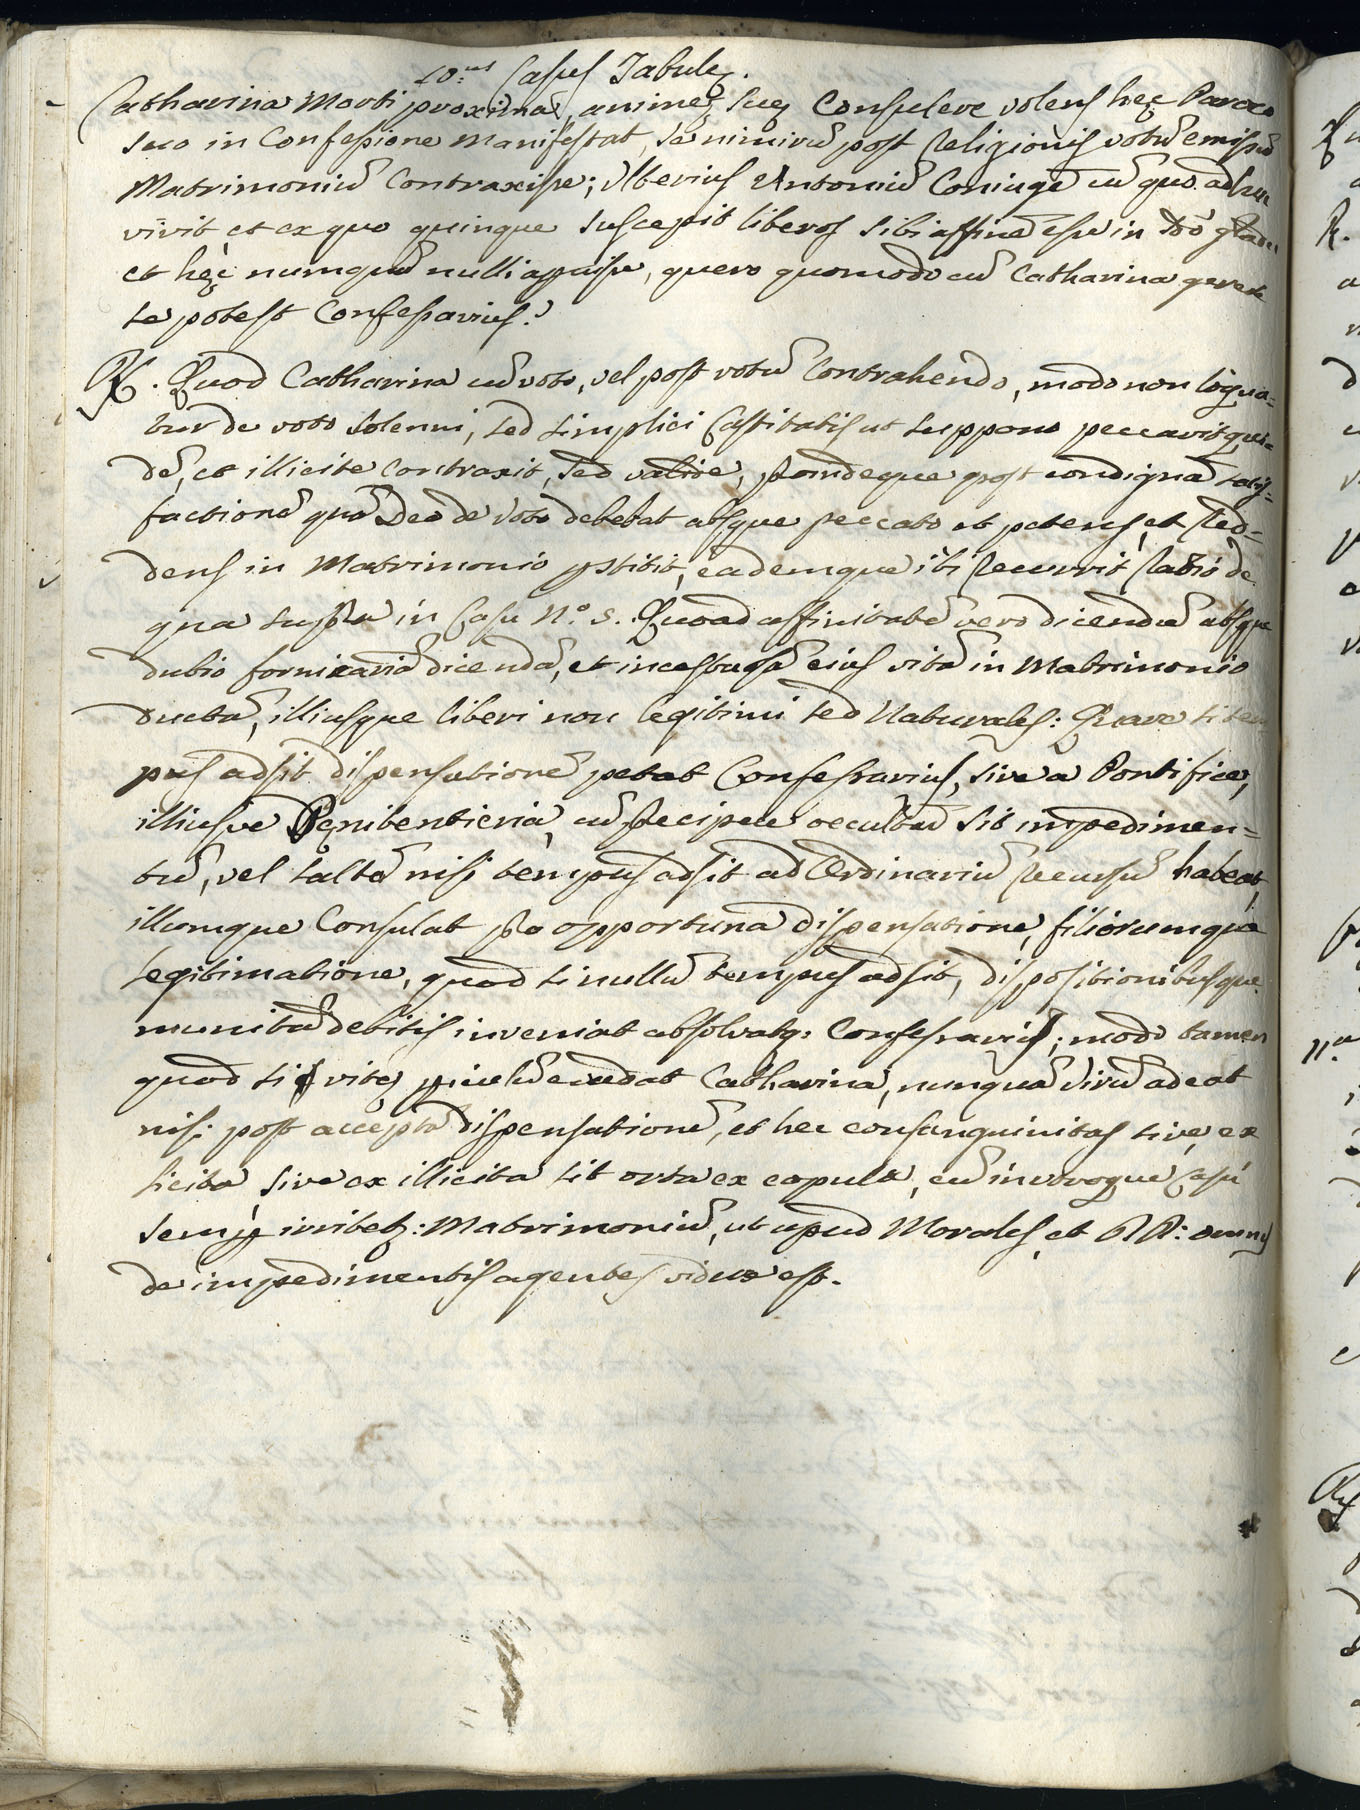 10.us Casus Tabulę.
Catharina Morti proxima, animę suę Consulere volens hęc Paroco
suo in Confessione Manifestat, se nimirũ post Religionis votũ emissũ
Matrimoniũ Contraxisse; Ulterius Antoniũ Coniugẽ cũ quo adhuc
vivit et ex quo quinque suscepit liberos sibi affinẽ esse in 2do gradu
et hęc numquã nulli aperuisse, quero quomodo cũ Catharina gerere
se potest Confessarius?
R. Quod Catharina cũ voto, vel post votũ Contrahendo, modo non loqua=
tur de voto solenni, sed simplici Castitatis ut suppono peccavit qui=
dẽ, et illicite Contraxit, sed valide, proindeque post condignã satis=
factionẽ quã Deo de voto debebat absque peccato et petens, et Red=
dens in Matrimonio pstitit, eademque ibi recurrit Ratio de
qua supra in Casu N.o 5. Quoad affinitatẽ vero dicendũ absque
dubio fornicariã dicendã, et incestuosã eius vitã in Matrimonio
ductã, illiusque liberi non legitimi sed Naturales: Quare si tem
pus adsit dispensationẽ petat Confessarius, sive a Pontifice,
illiusve Pęnitentieria, cũ precipue occultũ sit impedimen=
tũ, vel saltẽ nisi tempus adsit ad Ordinariũ recursũ habeat,
illumque Consulat pro opportuna dispensatione, filiorumque
legitimatione, quod si nullũ tempus adsit, dispositionibusque
munitã debitis inveniat absolvatq: Confessarius; modo tamen
quod si vitę piculũ evadat Catharina, nunquã virũ adeat
nisi post acceptã dispensationẽ, et hec consanguinitas sive ex
licita sive ex illicita sit orta ex copula, cũ in utroque Casu
semp irritetq: Matrimoniũ, ut apud Morales, et RR: omnes
de impedimentis agentes videre est.